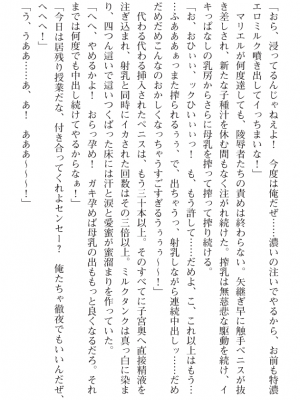 「おら、浸ってるんじゃねえよ！　今度は俺だぜ……濃いの注いでやるから、お前も特濃
エロミルク噴き出してイっちまいな！」
　マリエルが何度達しても、陵辱者たちの責めは終わらない。矢継ぎ早に触手ペニスが抜
き差しされ、新たな子種汁を休む間もなく注がれ続けた。搾乳は無慈悲な駆動を続け、イ
キっぱなしの乳房からさらに母乳を搾って搾って搾り続ける。
「お、おひぃぃ、ックひぃぃっ！　も、もう許して……だめよ、こ、これ以上はもう…
…ふああぁぁっまた搾られるぅぅ、で、出ちゃうっ、射乳しながら連続中出しッ……だめ
だめだめこんなのおかしくなっちゃうすごすぎるぅぅぅぅ〜！」
　代わる代わる挿入されたペニスは、もう三十本以上。そのすべてに子宮奥へ直接精液を
注ぎ込まれ、射乳と同時にイカされた回数はその三倍以上。ミルクタンクは真っ白に染ま
り、四つん這いで這いつくばった床には汗と涙と愛蜜が蜜溜まりを作っていた。
「へへ、やめるかよ！　おらっ孕め！　ガキ孕めば母乳の出ももっと良くなるだろ。それ
まで何度でも中出し続けてやるからなぁ！」
「今日は居残り授業だな、付き合ってくれよセンセー？　俺たちゃ徹夜でもいいんだぜ、
へへへ！」
「う、うああ…あ、あ！　ああああ〜〜〜！」